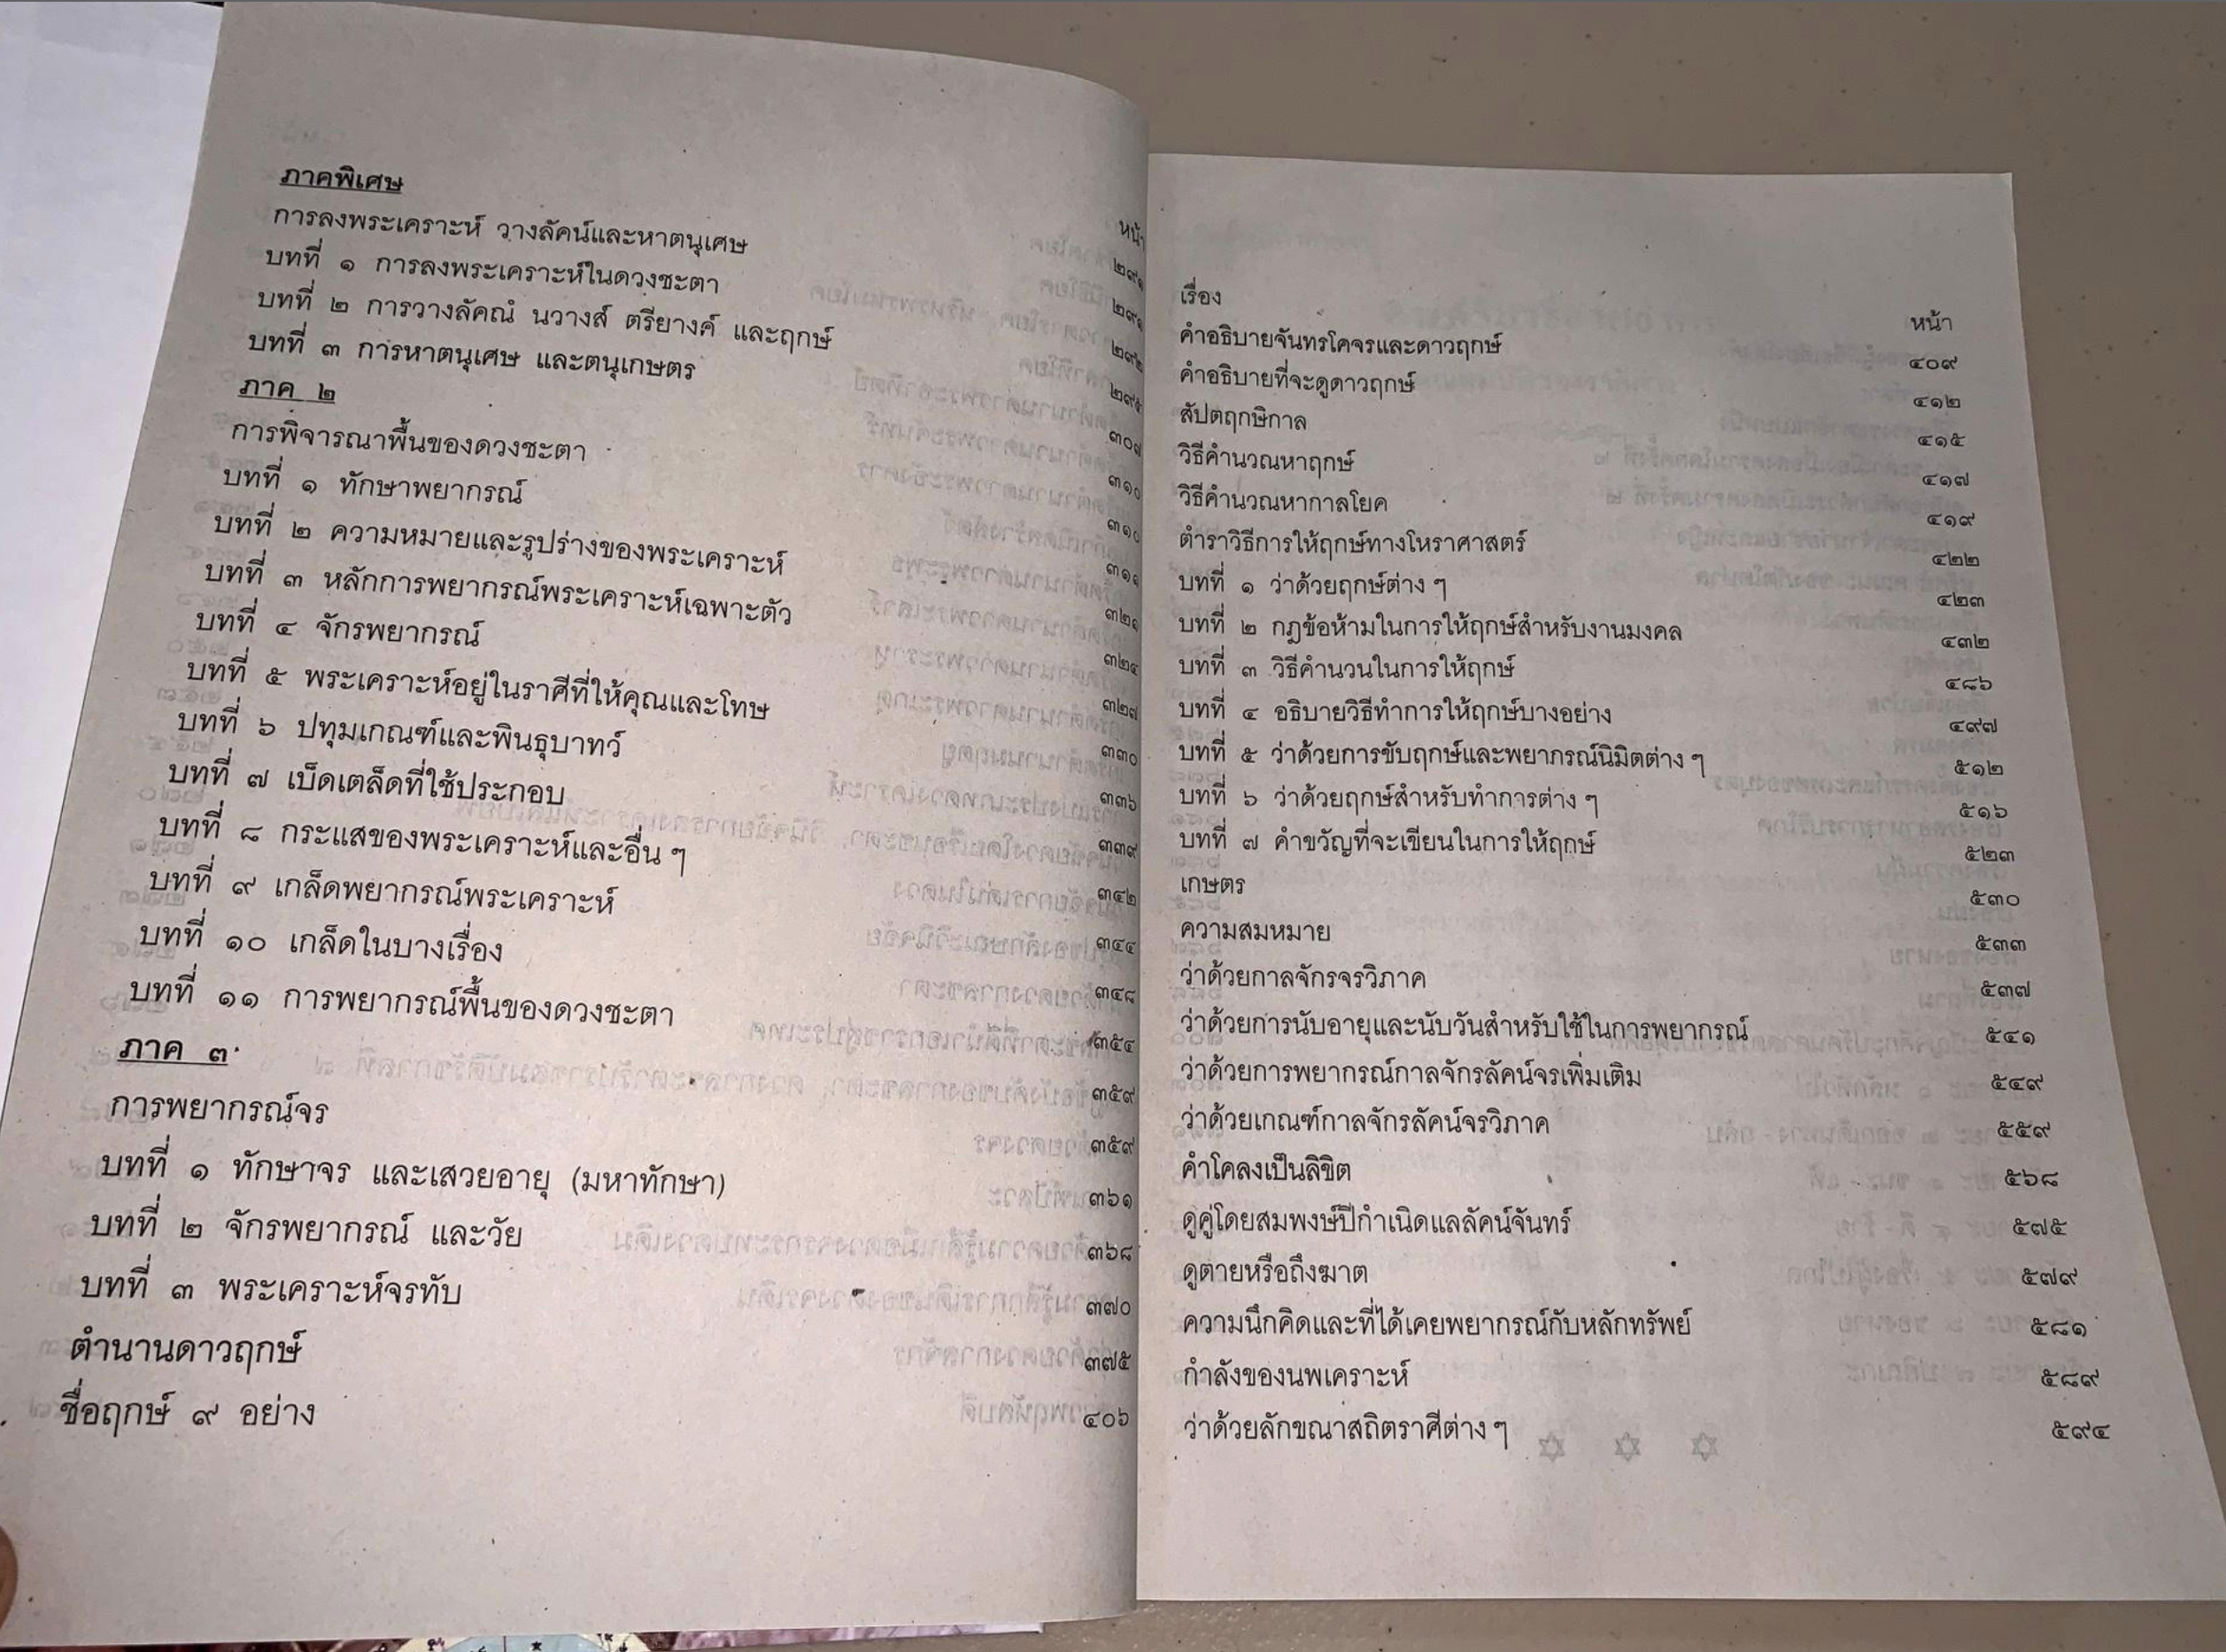 หน้า
ภาคพิเศษ ๒๙๑
การลงพระเคราะห์ วางลัคน์และหาตนุเศษ ๒๙๑
บทที่ ๑ การลงพระเคราะห์ในดวงชะตา ๒๙๒
บทที่ ๒ การวางลัคณํ นวางส์ ตรียางค์ และฤกษ์ ๒๙๕
บทที่ ๓ การหาตนุเศษ และตนุเกษตร ๓๐๗
ภาค ๒ ๓๑๐
การพิจารณาพื้นของดวงชะตา ๓๑๐
บทที่ ๑ ทักษาพยากรณ์ ๓๑๑
บทที่ ๒ ความหมายและรูปร่างของพระเคราะห์ ๓๒๑
บทที่ ๓ หลักการพยากรณ์พระเคราะห์เฉพาะตัว ๓๒๔
บทที่ ๔ จักรพยากรณ์ ๓๒๗
บทที่ ๕ พระเคราะห์อยู่ในราศีที่ให้คุณและโทษ ๓๓๐
บทที่ ๖ ปทุมเกณฑ์และพินธุบาทว์ ๓๓๖
บทที่ ๗ เบ็ดเตล็ดที่ใช้ประกอบ ๓๓๙
บทที่ ๘ กระแสของพระเคราะห์และอื่น ๆ ๓๔๒
บทที่ ๙ เกล็ดพยากรณ์พระเคราะห์ ๓๔๔
บทที่ ๑๐ เกล็ดในบางเรื่อง ๓๔๘
บทที่ ๑๑ การพยากรณ์พื้นของดวงชะตา ๓๕๔
ภาค ๓ ๓๕๙
การพยากรณ์จร ๓๕๙
บทที่ ๑ ทักษาจร และเสวยอายุ (มหาทักษา) ๓๖๑
บทที่ ๒ จักรพยากรณ์ และวัย ๓๖๘
บทที่ ๓ พระเคราะห์จรทับ ๓๗๐
ตำนานดาวฤกษ์ ๓๗๕
ชื่อฤกษ์ ๙ อย่าง ๔๐๖
เรื่อง หน้า
คำอธิบายจันทรโคจรและดาวฤกษ์ ๔๐๙
คำอธิบายที่จะดูดาวฤกษ์ ๔๑๒
สัปตฤกษิกาล ๔๑๕
วิธีคำนวณหาฤกษ์ ๔๑๗
วิธีคำนวณหากาลโยค ๔๑๙
ตำราวิธีการให้ฤกษ์ทางโหราศาสตร์ ๔๒๒
บทที่ ๑ ว่าด้วยฤกษ์ต่าง ๆ ๔๒๓
บทที่ ๒ กฎข้อห้ามในการให้ฤกษ์สำหรับงานมงคล ๔๓๒
บทที่ ๓ วิธีคำนวนในการให้ฤกษ์ ๔๘๖
บทที่ ๔ อธิบายวิธีทำการให้ฤกษ์บางอย่าง ๔๙๗
บทที่ ๕ ว่าด้วยการขับฤกษ์และพยากรณ์นิมิตต่าง ๆ ๕๑๒
บทที่ ๖ ว่าด้วยฤกษ์สำหรับทำการต่าง ๆ ๕๑๖
บทที่ ๗ คำขวัญที่จะเขียนในการให้ฤกษ์ ๕๒๓
เกษตร ๕๓๐
ความสมหมาย ๕๓๓
ว่าด้วยกาลจักรจรวิภาค ๕๓๗
ว่าด้วยการนับอายุและนับวันสำหรับใช้ในการพยากรณ์ ๕๔๑
ว่าด้วยการพยากรณ์กาลจักรลัคน์จรเพิ่มเติม ๕๔๙
ว่าด้วยเกณฑ์กาลจักรลัคน์จรวิภาค ๕๕๙
คำโคลงเป็นลิขิต ๕๖๘
ดูคู่โดยสมพงษ์ปีกำเนิดแลลัคน์จันทร์ ๕๗๕
ดูตายหรือถึงฆาต ๕๗๙
ความนึกคิดและที่ได้เคยพยากรณ์กับหลักทรัพย์ ๕๘๑
กำลังของนพเคราะห์ ๕๘๙
ว่าด้วยลักขณาสถิตราศีต่าง ๆ ๕๙๔